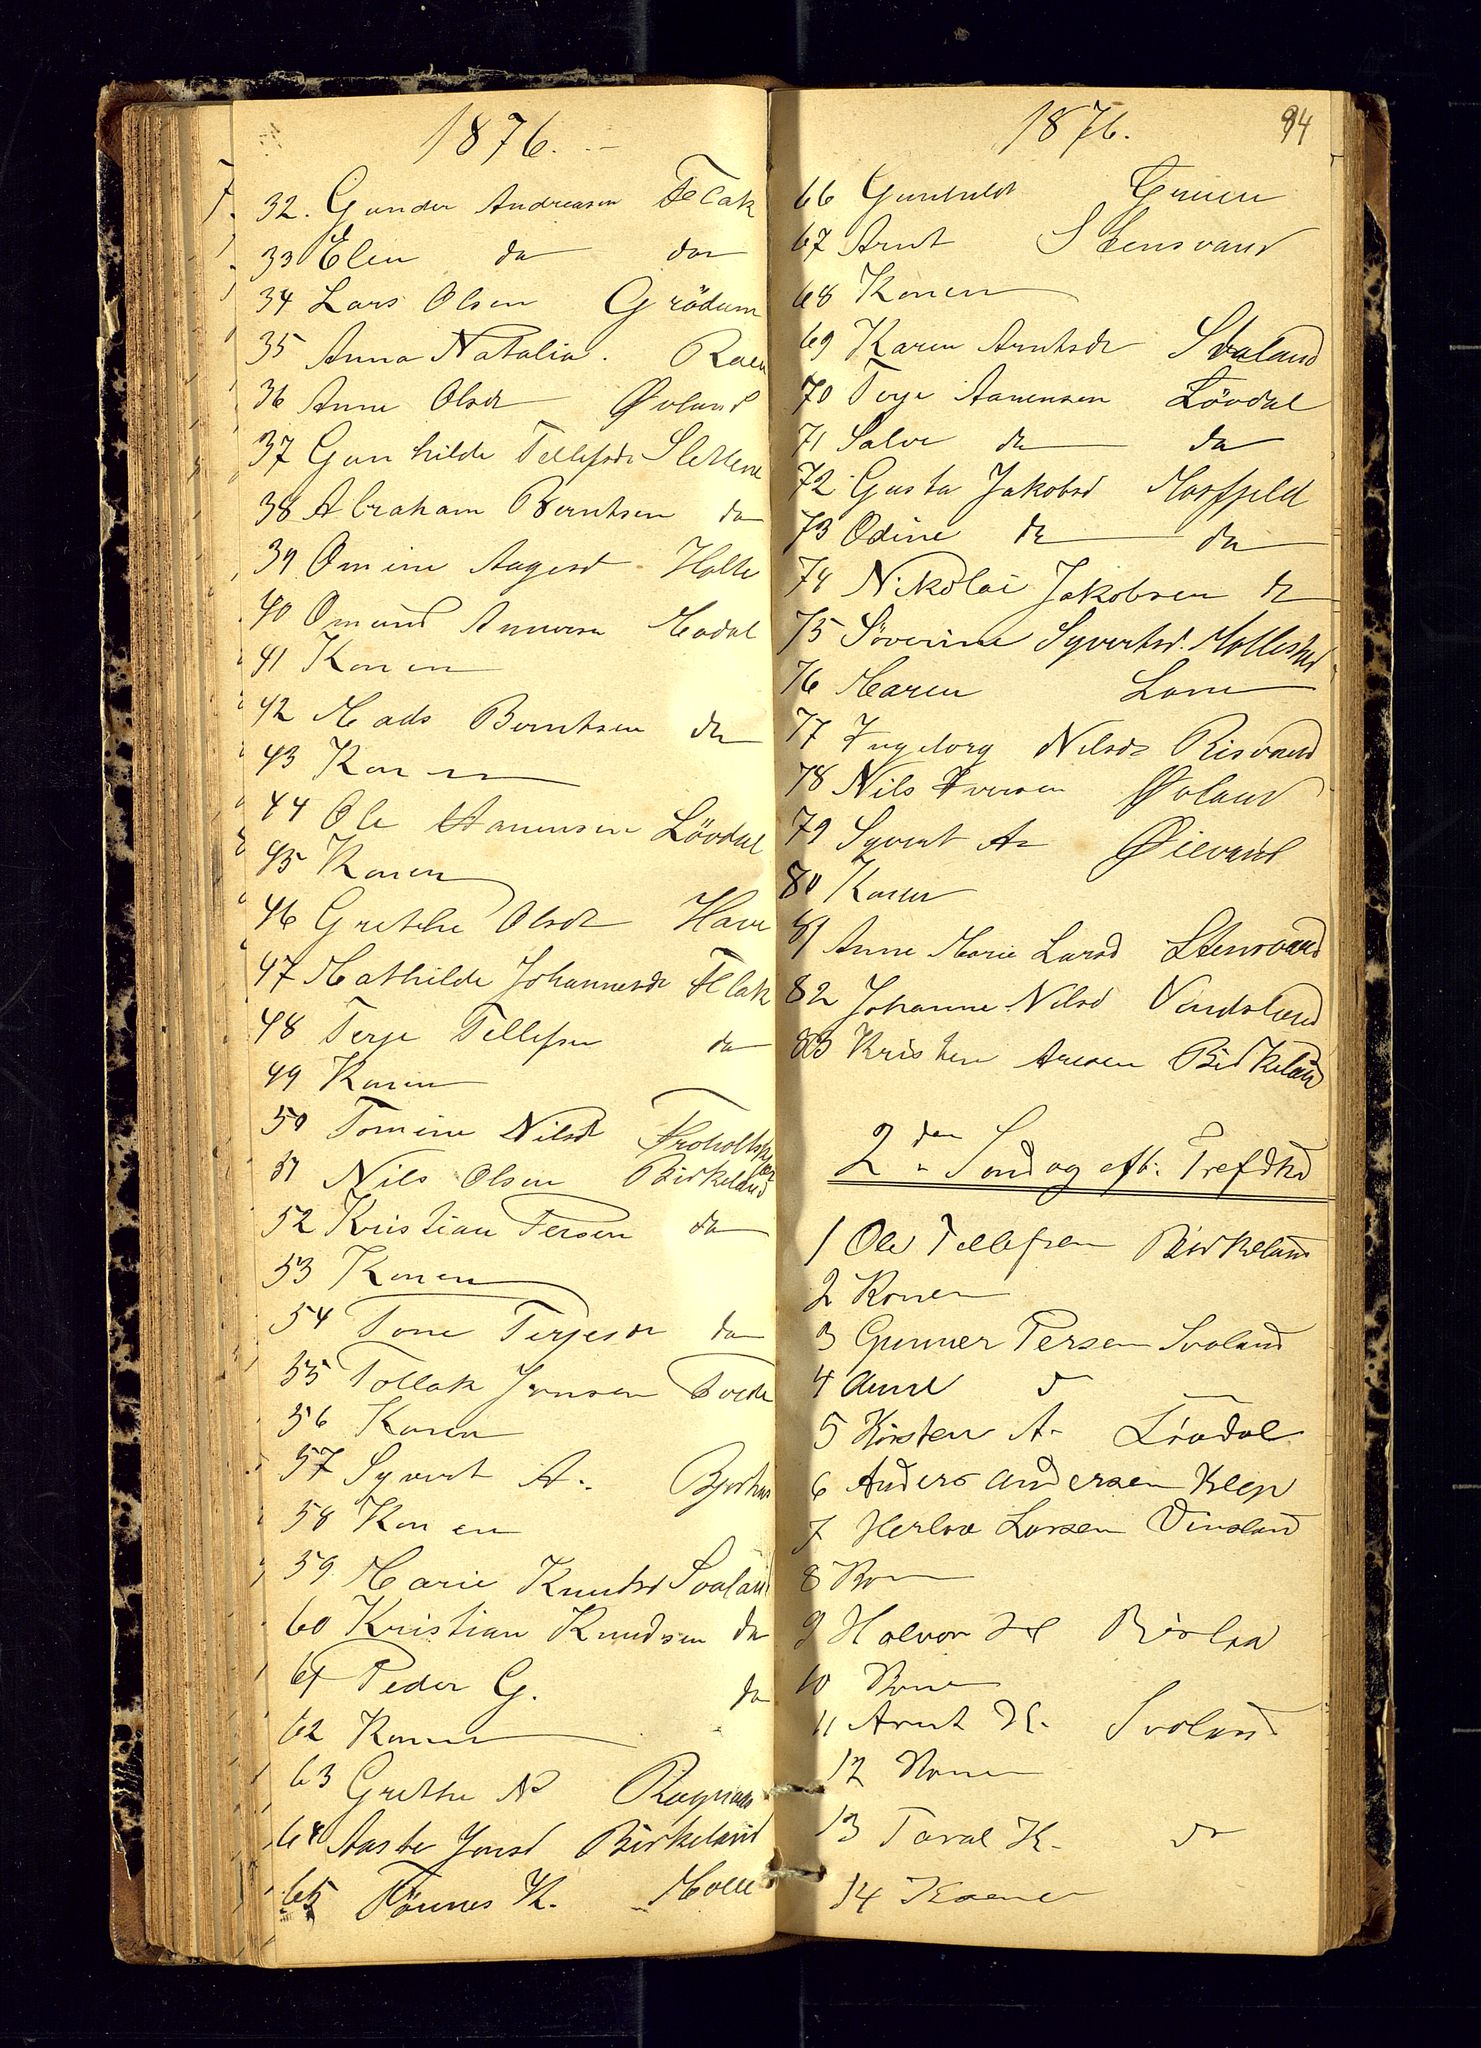 1876.
32. Gunder Andreasen Flak
33 Elen do do
34 Lars Olsen Grødum
35 Anna Natalia. Raen
36 Anne Olsdt Øvland
37 Gunhilde Tellefsdt Slettene
38 Abraham Berntsen do
39 Omine Aagesd Holte
40 Omund Modal
41 Konen
42 Mads Berntsen do
43 Konen
44 Ole Aanensen Løvdal
45 Konen
46 Grethe Olsdt Have
47 Mathilde Johannesdt Flak
48 Terje Tellefsen do
49 Konen
50 Tomine Nilsdt
51 Nils Olsen Birkeland
52 Kristian Persen do
53 Konen
54 Tone Terjesdt do
55 Tollak Jonsen
56 Konen
57 Syvert A.
58 Konen
59 Marie Knutsd Svaland
60 Kristian Knudsen do
61 Peder G. do
62 Konen
63 Grethe N
64 Aaste Jonsd Birkeland
65 Tønnes K. Moee
1876. 94
66 Gunhild
67 Arnt Stensvand
68 Konen
69 Karen Arntsdt Svaland
70 Terje Aanensen Løvdal
71 Salve do do
72 Gusta Jakobsd Mosfjeld
73 Odine do do
74 Nikolai Jakobsen do
75 Søverine Syvertsd. Mollestad
76 Maren Lone
77 Ingeborg Nilsdt Risvand
78 Nils Iversen Øvland
79 Syvert A
80 Konen
81 Anne Marie Larsd Stensvand
82 Johanne Nilsd Vindsland
83 Kristen Aresen Birkeland
2den Søndag eft. Trefdhd
1 Ole Tellefsen Birkeland
2 Konen
3 Gunner Persen Svaland
4 d
5 Kirsten A. Løvdal
6 Anders Andersen Kleep
7 Herlov Larsen Vinsland
8 Kon
9 Halvor H Rislaa
10 Kone
11 Arnt K. Svaland
12 Konen
13 Taral K. do
14 Konen